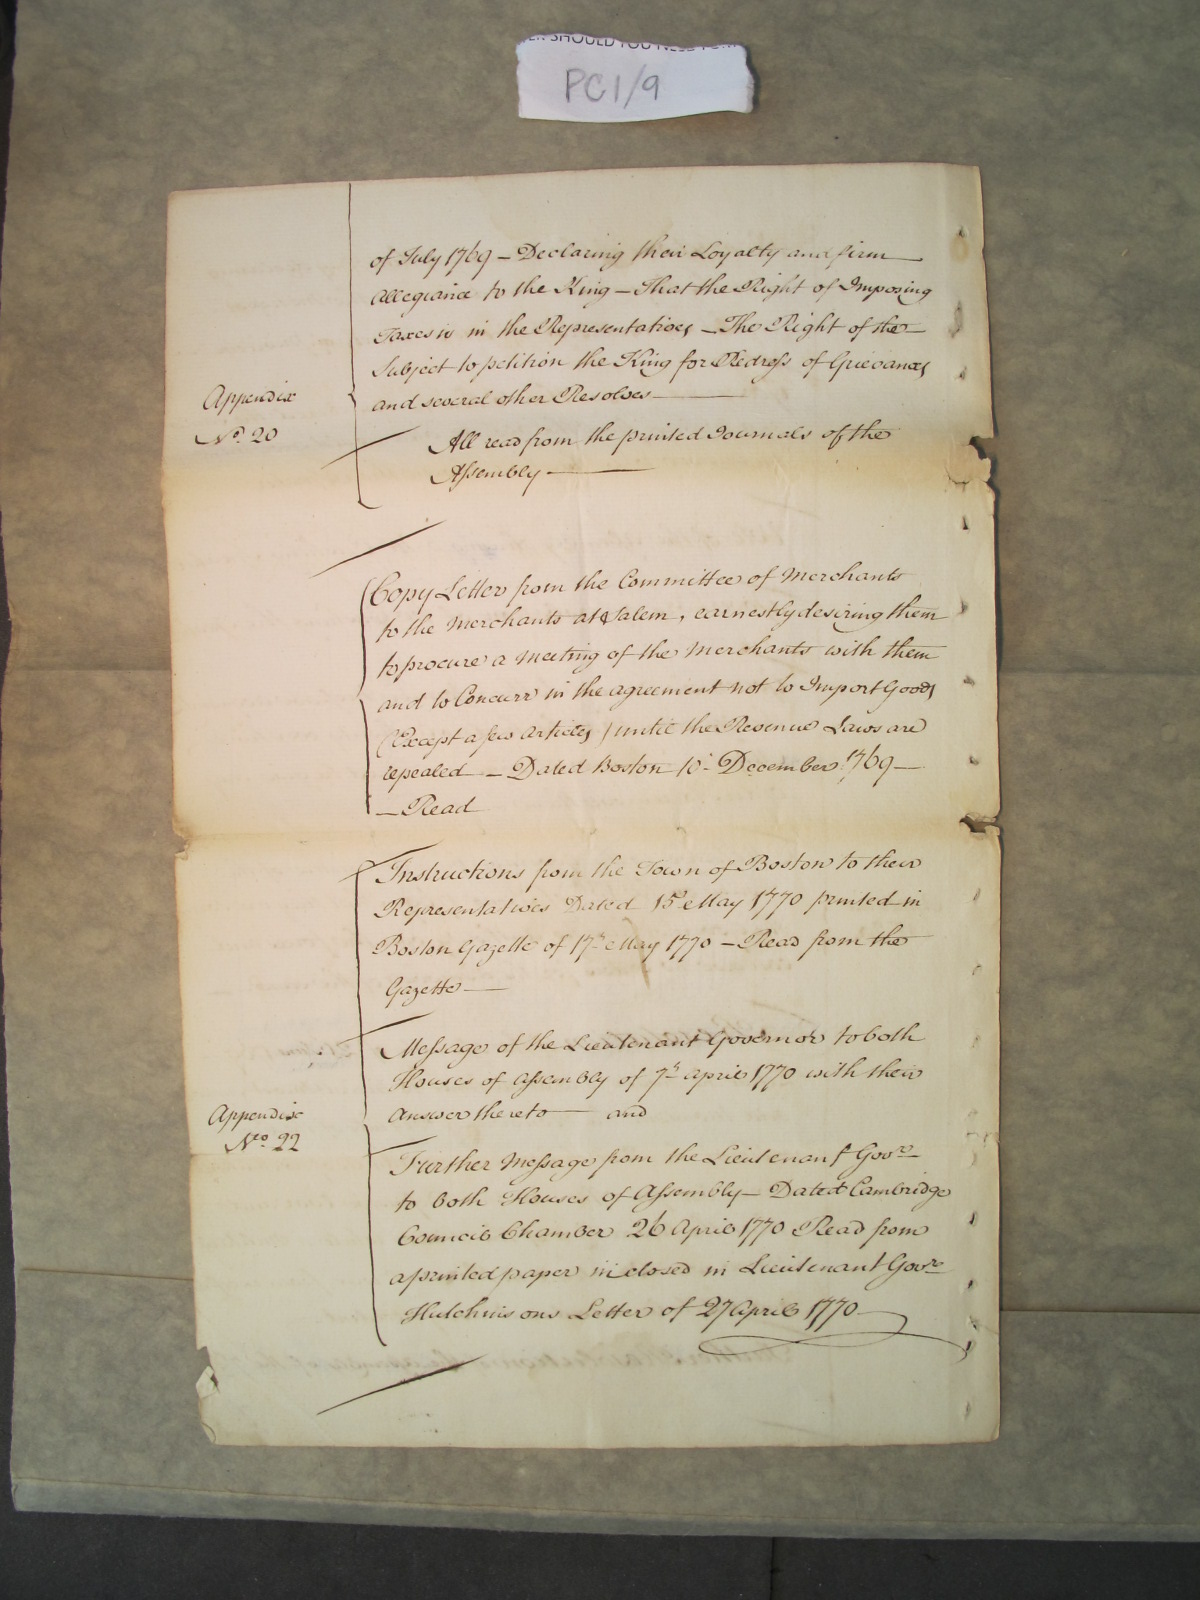 PC1/9
of July 1769 – Declaring their Loyalty and firm
Allegiance to the King – That the Right of Imposing
Taxes is in the Representatives – The Right of the
Subject to petition the King for Redress of Grievances
and several other Resolves
Appendix
No. 20
All read from the printed Journals of the
Assembly
Copy Letter from the Committee of Merchants
to the Merchants at Salem, earnestly desiring them
to procure a meeting of the Merchants with them
and to Concurr in the agreement not to Import Goods
(Except a few Articles) until the Revenue Laws are
repealed – Dated Boston December 1769 –
– Read
Instructions from the Town of Boston to their
Representatives Dated 15th May 1770 printed in
Boston Gazette of 17th May 1770 – Read from the
Gazette
Message of the Lieutenant Governor to both
Houses of Assembly of 7th April 1770 with their
Answer thereto – and
Appendix
No. 22
Further Message from the Lieutenant Govre
to both Houses of Assembly – Dated Cambridge
Council Chamber 26 April 1770 Read from
a printed paper inclosed in Lieutenant Govre
Hutchinsons Letter of 27 April 1770